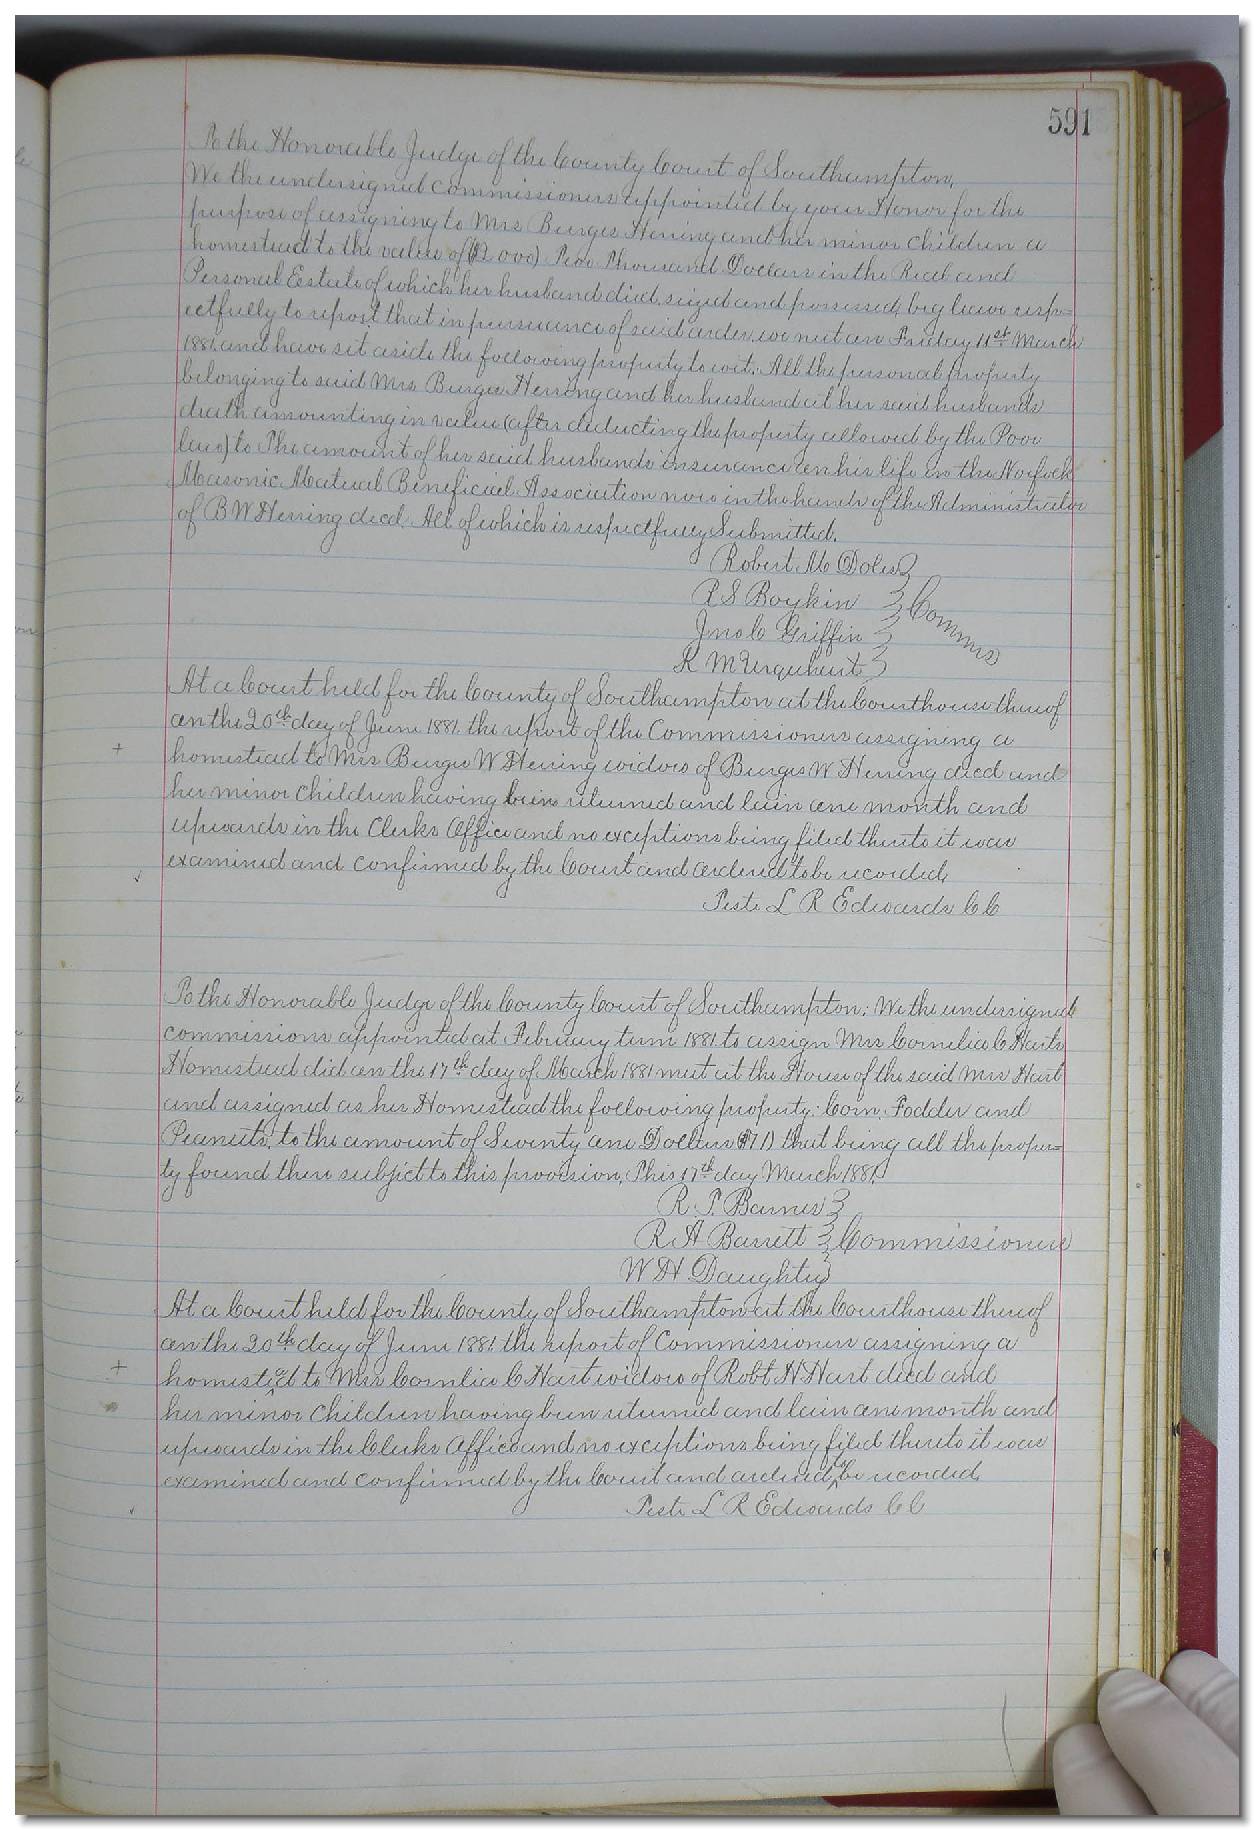 591
To the Honorable Judge of the County Court of Southampton,
We the undersigned commissioners appointed by your Honor for the
purpose of assigning to Mrs Burges Herring and her minor children a
homestead to the value of ($2000) Two Thousand Dollars in the Real and
Personal Estate of which her husband died, sized and possessed, beg leave resp=
ectfully to report that in persuance of said order, we met on Friday 11st March
1881. and have sit aside the following property to wit: All the personal property
belonging to said Mrs Burges Herring and her husband at her said husbands
death amounting in value (after deducting the property allowed by the Poor
law) to The amount of her said husbands insurance on her life in the Norfolk
Masonic Mutual Benificial Association now in the hands of the Administrator
of B W Herring decd. All of which is respectfully Submitted.
Robert M Doles
R S Boykin
Commrs
Jno C Griffin
R M Urquhart
At a Court held for the County of Southampton at the Courthouse thereof
on the 20th day of June 1881. the report of the Commissioners assigning a
+ homestead to Mrs Burges W Herring widow of Burges W Herring decd and
her minor children having been returned and lain one month and
upwards in the Clerks Office and no exceptions being filed thereto it was
examined and confirmed by the Court and ordered to be recorded,
Teste L R Edwards CC
To the Honorable Judge of the County Court of Southampton: We the undersigned
commissions appointed at February term 1881. to assign Mrs Cornelia C Harts
Homestead did on the 17th day of March 1881 meet at the House of the said Mrs Hart
and assigned as her Homestead the following property: Corn, Fodder and
Peanuts, to the amount of Seventy one Dollars ($71) that being all the proper=
ty found there subject to this provision, This 17th day March 1881,
R. T. Barnes
R. A Barrett Commissioners
W H Daughtry
At a Court held for the County of Southampton at the Courthouse thereof
on the 20th day of June 1881. the report of Commissioners assigning a
+ homestead to Mrs Cornlia C Hart widow of Robt H Hart decd and
her minor children having been returned and lain one month and
upwards in the Clerks Office and no exceptions being filed thereto it was
examined and confirmed by the Court and ordered to be recorded,
Teste L R Edwards CC